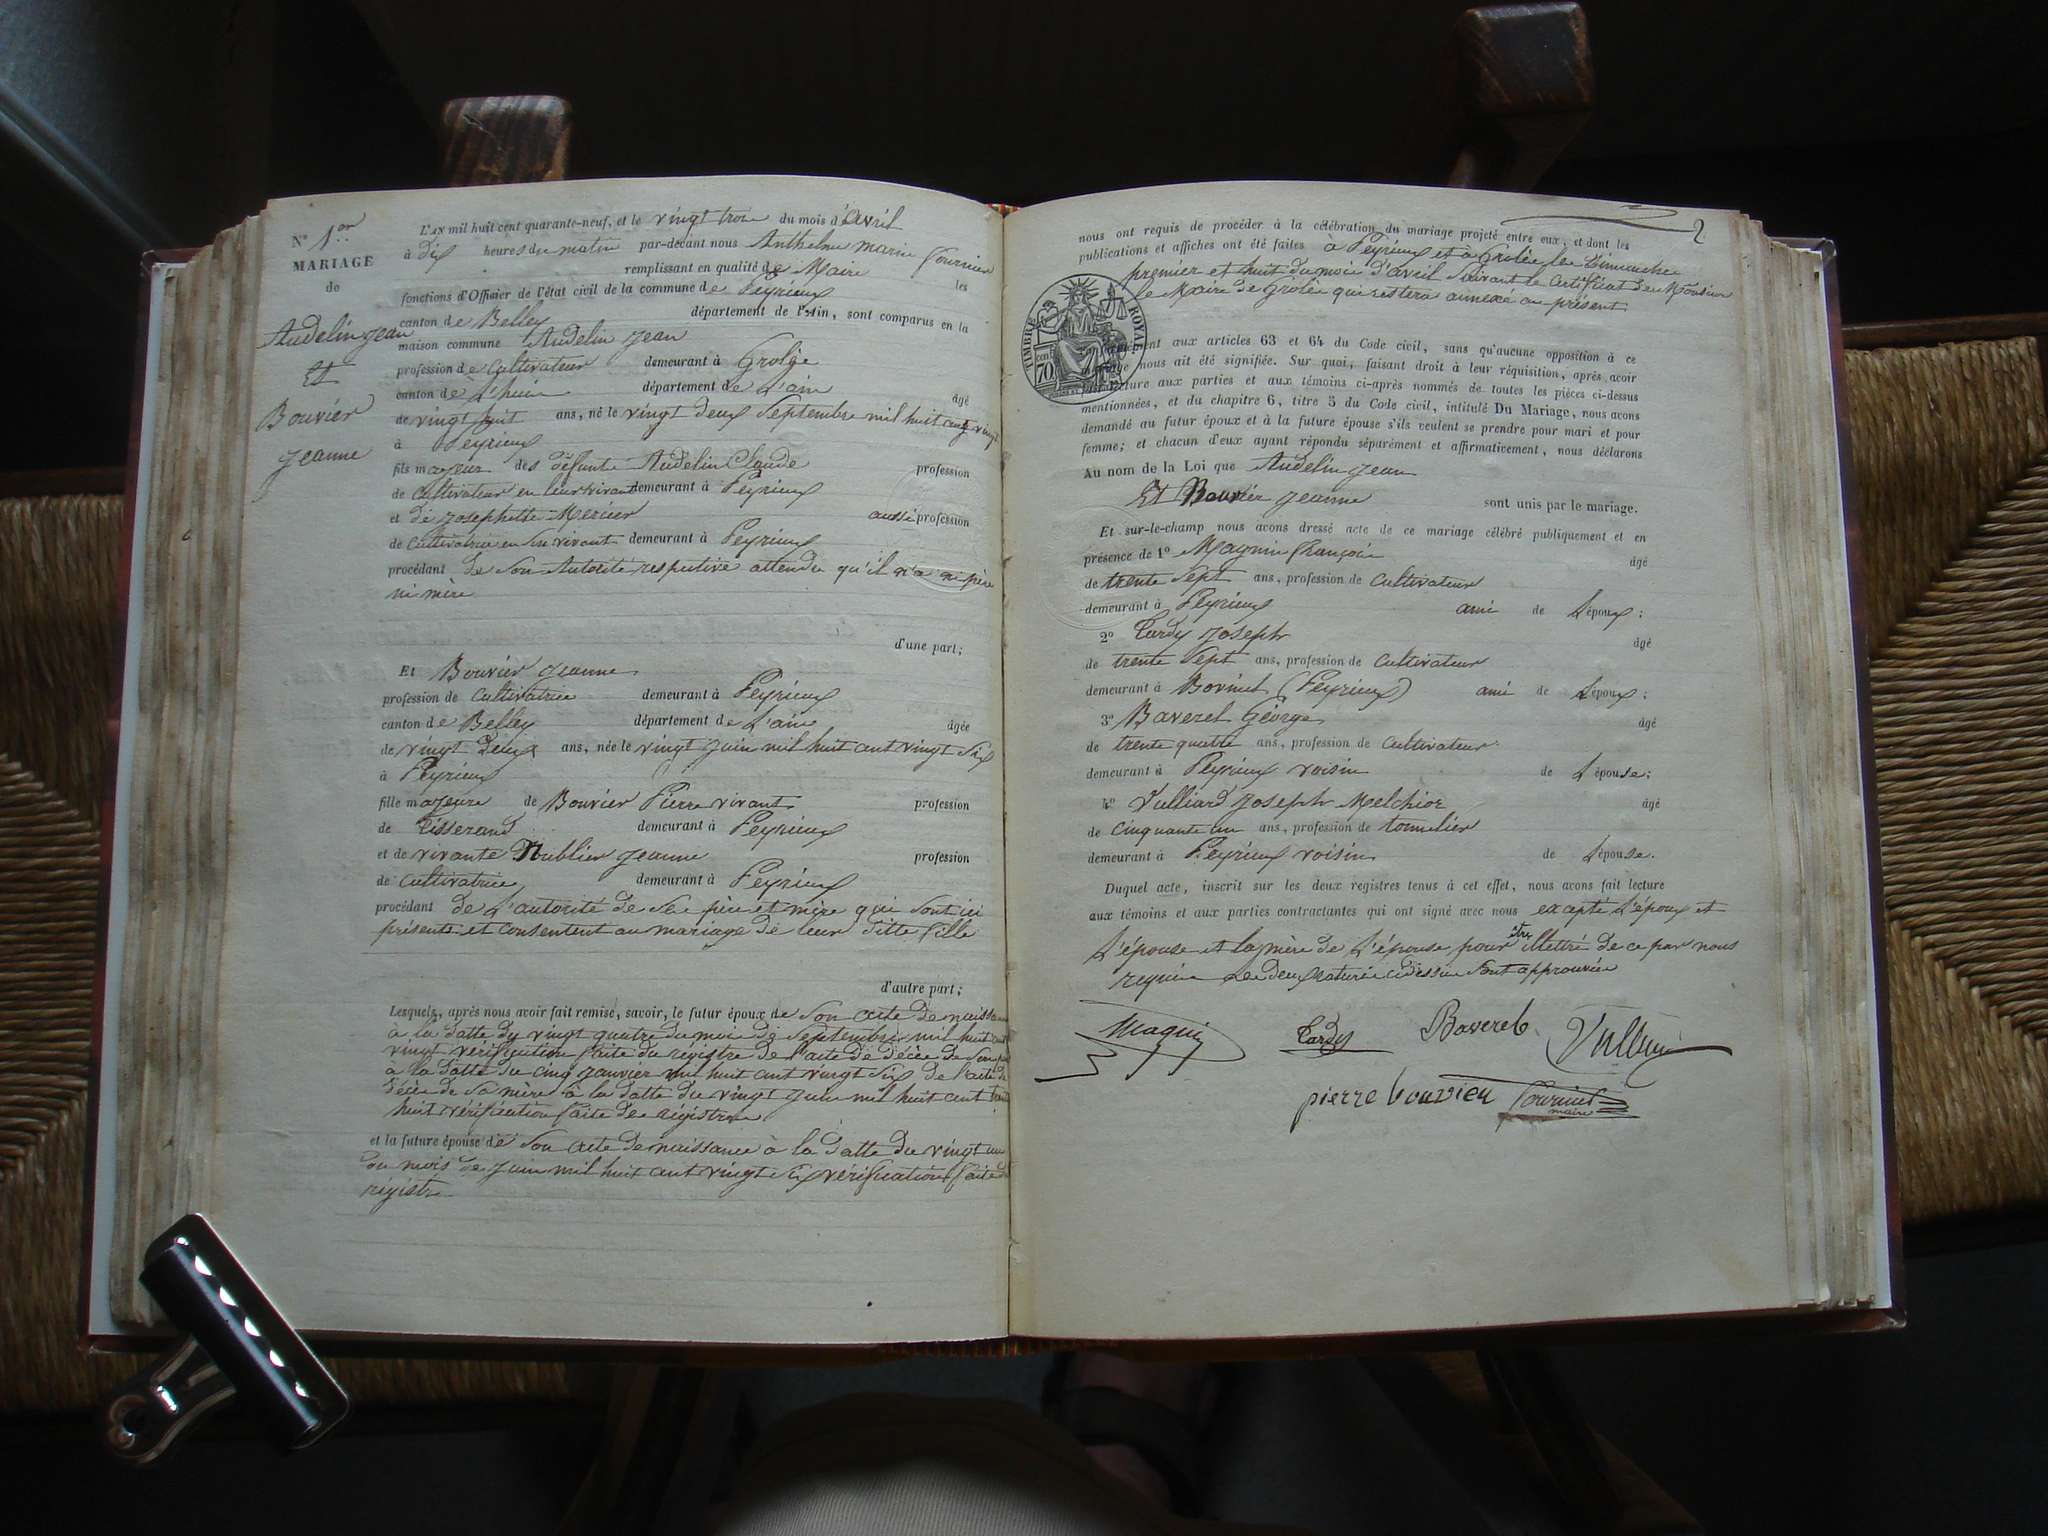 N° 1er
MARIAGE
de
Andelin Jean
Et
Bouvier
Jeanne
L'AN mil huit cent quarante-neuf, et le vingt trois du mois d'avril
à dix heures du matin par-devant nous Anthelme Marie Fournier
remplissant en qualité de Maire les
fonctions d'Officier de l'état civil de la commune de Peyrieux
canton de Belley département de l'Ain, sont comparus en la
maison commune Andelin Jean
profession de cultivateur demeurant à Grolée
canton de L'huis département de L'ain âgé
de vingt huit ans, né le vingt deux Septembre mil huit cent vingt
à Peyrieux
fils majeur des défunts Andelin Claude profession
de cultivateur en leur vivant demeurant à Peyrieux
et de Josephette Mercier aussi profession
de cultivatrice en son vivant demeurant à Peyrieux
procédant de son Autorité respective attendu qu'il n'a ni père
ni mère
d'une part;
Et Bouvier Jeanne
profession de cultivatrice demeurant à Peyrieux
canton de Belley département de L'ain âgée
de vingt deux ans, née le vingt Juin mil huit cent vingt six
à Peyrieux
fille majeure de Bouvier Pierre vivant profession
de Tisserand demeurant à Peyrieux
et de vivante Nublier Jeanne profession
de cultivatrice demeurant à Peyrieux
procédant de L'autorité de ses père et mère qui sont ici
présents et consentent au mariage de leur ditte fille
d'autre part;
Lesquels, après nous avoir fait remise, savoir, le futur époux de son acte de naissance
à la datte du vingt quatre du mois de Septembre mil huit cent
vingt vérification faite du régistre de l'acte de décès de son père
à la datte du cinq Janvier mil huit cent vingt six de l'acte de
décès de sa mère à la datte du vingt Juin mil huit cent trente
huit vérification faite des régistres
et la future épouse de son acte de naissance à la datte du vingt un
du mois de Juin mil huit cent vingt six vérification faite du
régistre
2
nous ont requis de procéder à la célébration du mariage projeté entre eux, et dont les
publications et affiches ont été faites à Peyrieux et à Grolée les Dimanches
premier et huit du mois d'avril suivant le certificat de Monsieur
le Maire de Grolée qui restera annexé au présent
TIMBRE ROYAL
70
conformément aux articles 63 et 64 du Code civil, sans qu'aucune opposition à ce
mariage nous ait été signifiée. Sur quoi, faisant droit à leur réquisition, après avoir
fait lecture aux parties et aux témoins ci-après nommés de toutes les pièces ci-dessus
mentionnées, et du chapitre 6, titre 5 du Code civil, intitulé Du Mariage, nous avons
demandé au futur époux et à la future épouse s'ils veulent se prendre pour mari et pour
femme; et chacun d'eux ayant répondu séparément et affirmativement, nous déclarons
Au nom de la Loi que Andelin Jean
Et Bouvier Jeanne sont unis par le mariage.
Et sur-le-champ nous avons dressé acte de ce mariage célébré publiquement et en
présence de 1° Magnin François âgé
de trente sept ans, profession de cultivateur
demeurant à Peyrieux ami de L'époux;
2° Tardy Joseph âgé
de trente sept ans, profession de cultivateur
demeurant à Bovinel (Peyrieux) ami de L'époux;
3° Baverel George âgé
de trente quatre ans, profession de cultivateur
demeurant à Peyrieux voisin de L'épouse;
4° Vulliard Joseph Melchior âgé
de cinquante un ans, profession de tonnelier
demeurant à Peyrieux voisin de L'épouse.
Duquel acte, inscrit sur les deux registres tenus à cet effet, nous avons fait lecture
aux témoins et aux parties contractantes qui ont signé avec nous excepté L'époux et
L'épouse et la mère de L'épouse pour être illettré de ce par nous
requis Les deux ratures cidessus sont approuvées
Magnin Tardy Baverel Vulliard
pierre bouvier Fournier
maire